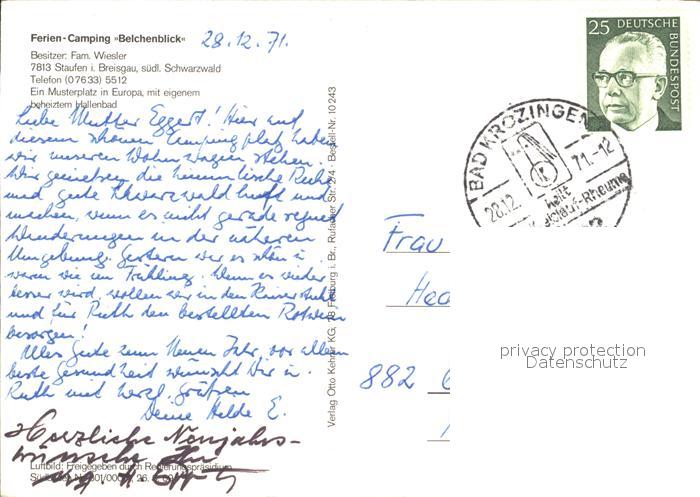 Ferien-Camping »Belchenblick«
28.12.71.
Besitzer: Fam. Wiesler
7813 Staufen i. Breisgau, südl. Schwarzwald
Telefon (07633) 5512
Ein Musterplatz in Europa, mit eigenem
beheiztem Hallenbad
Liebe Mutter Eggert! Hier auf
diesem schönen Campingplatz haben
wir unseren Wohnwagen stehen.
Wir genießen die himmlische Ruhe
und gute Schwarzwaldluft und
machen, wenn es nicht gerade regnet
Wanderungen in der näheren
Umgebung. Gestern war es schön u.
warm wie im Frühling. Wenn es wieder
besser wird, wollen wir in den Kaiserstuhl
und für Ruth den bestellten Rotwein
besorgen!
Alles Gute zum Neuen Jahr, vor allem
beste Gesundheit wünscht Dir u.
Ruth mit herzl. Grüßen
Deine Hilde E.
Herzliche Neujahrs-
wünsche
Luftbild: Freigegeben durch Regierungspräsidium
Verlag Otto Kehrer KG, 78 Freiburg i. Br., Rufacher Str. 2/4 · Bestell-Nr. 10 243
25 DEUTSCHE BUNDESPOST
BAD KROZINGEN
28.12. 71.-12
heilt
Kreislauf-Rheuma
Frau
882
privacy protection
Datenschutz